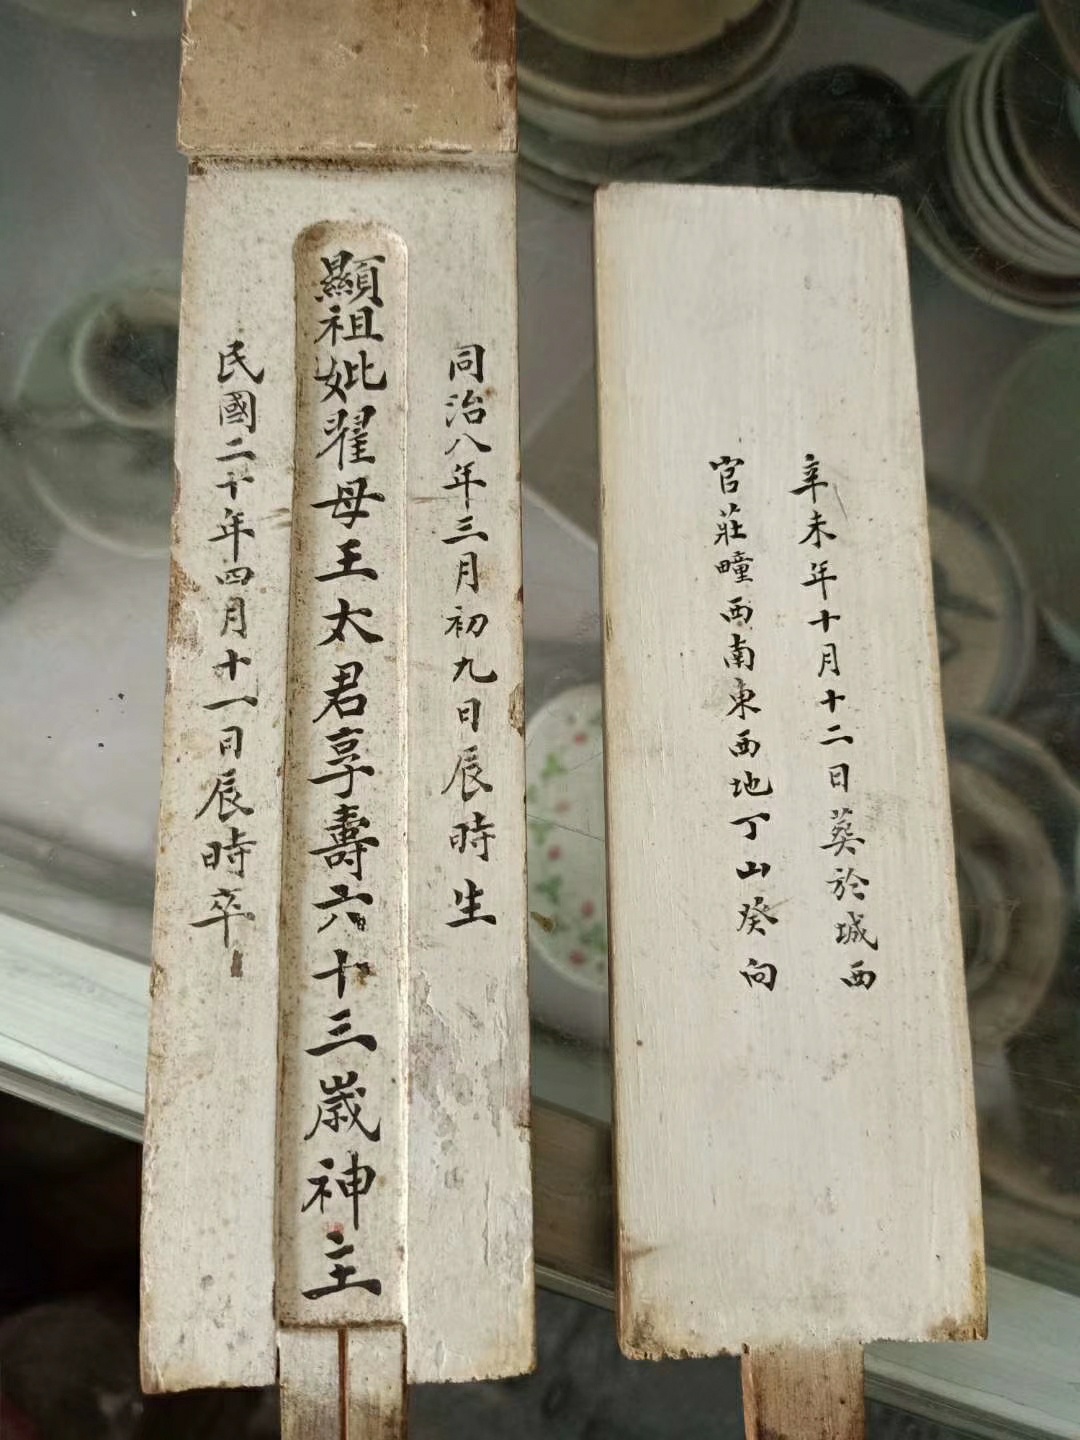 同治八年三月初九日辰時生
顯祖妣翟母王太君享壽六十三歲神主
民國二十年四月十一日辰時卒
辛未年十月十二日葬於城西
官莊疃西南東西地丁山癸向